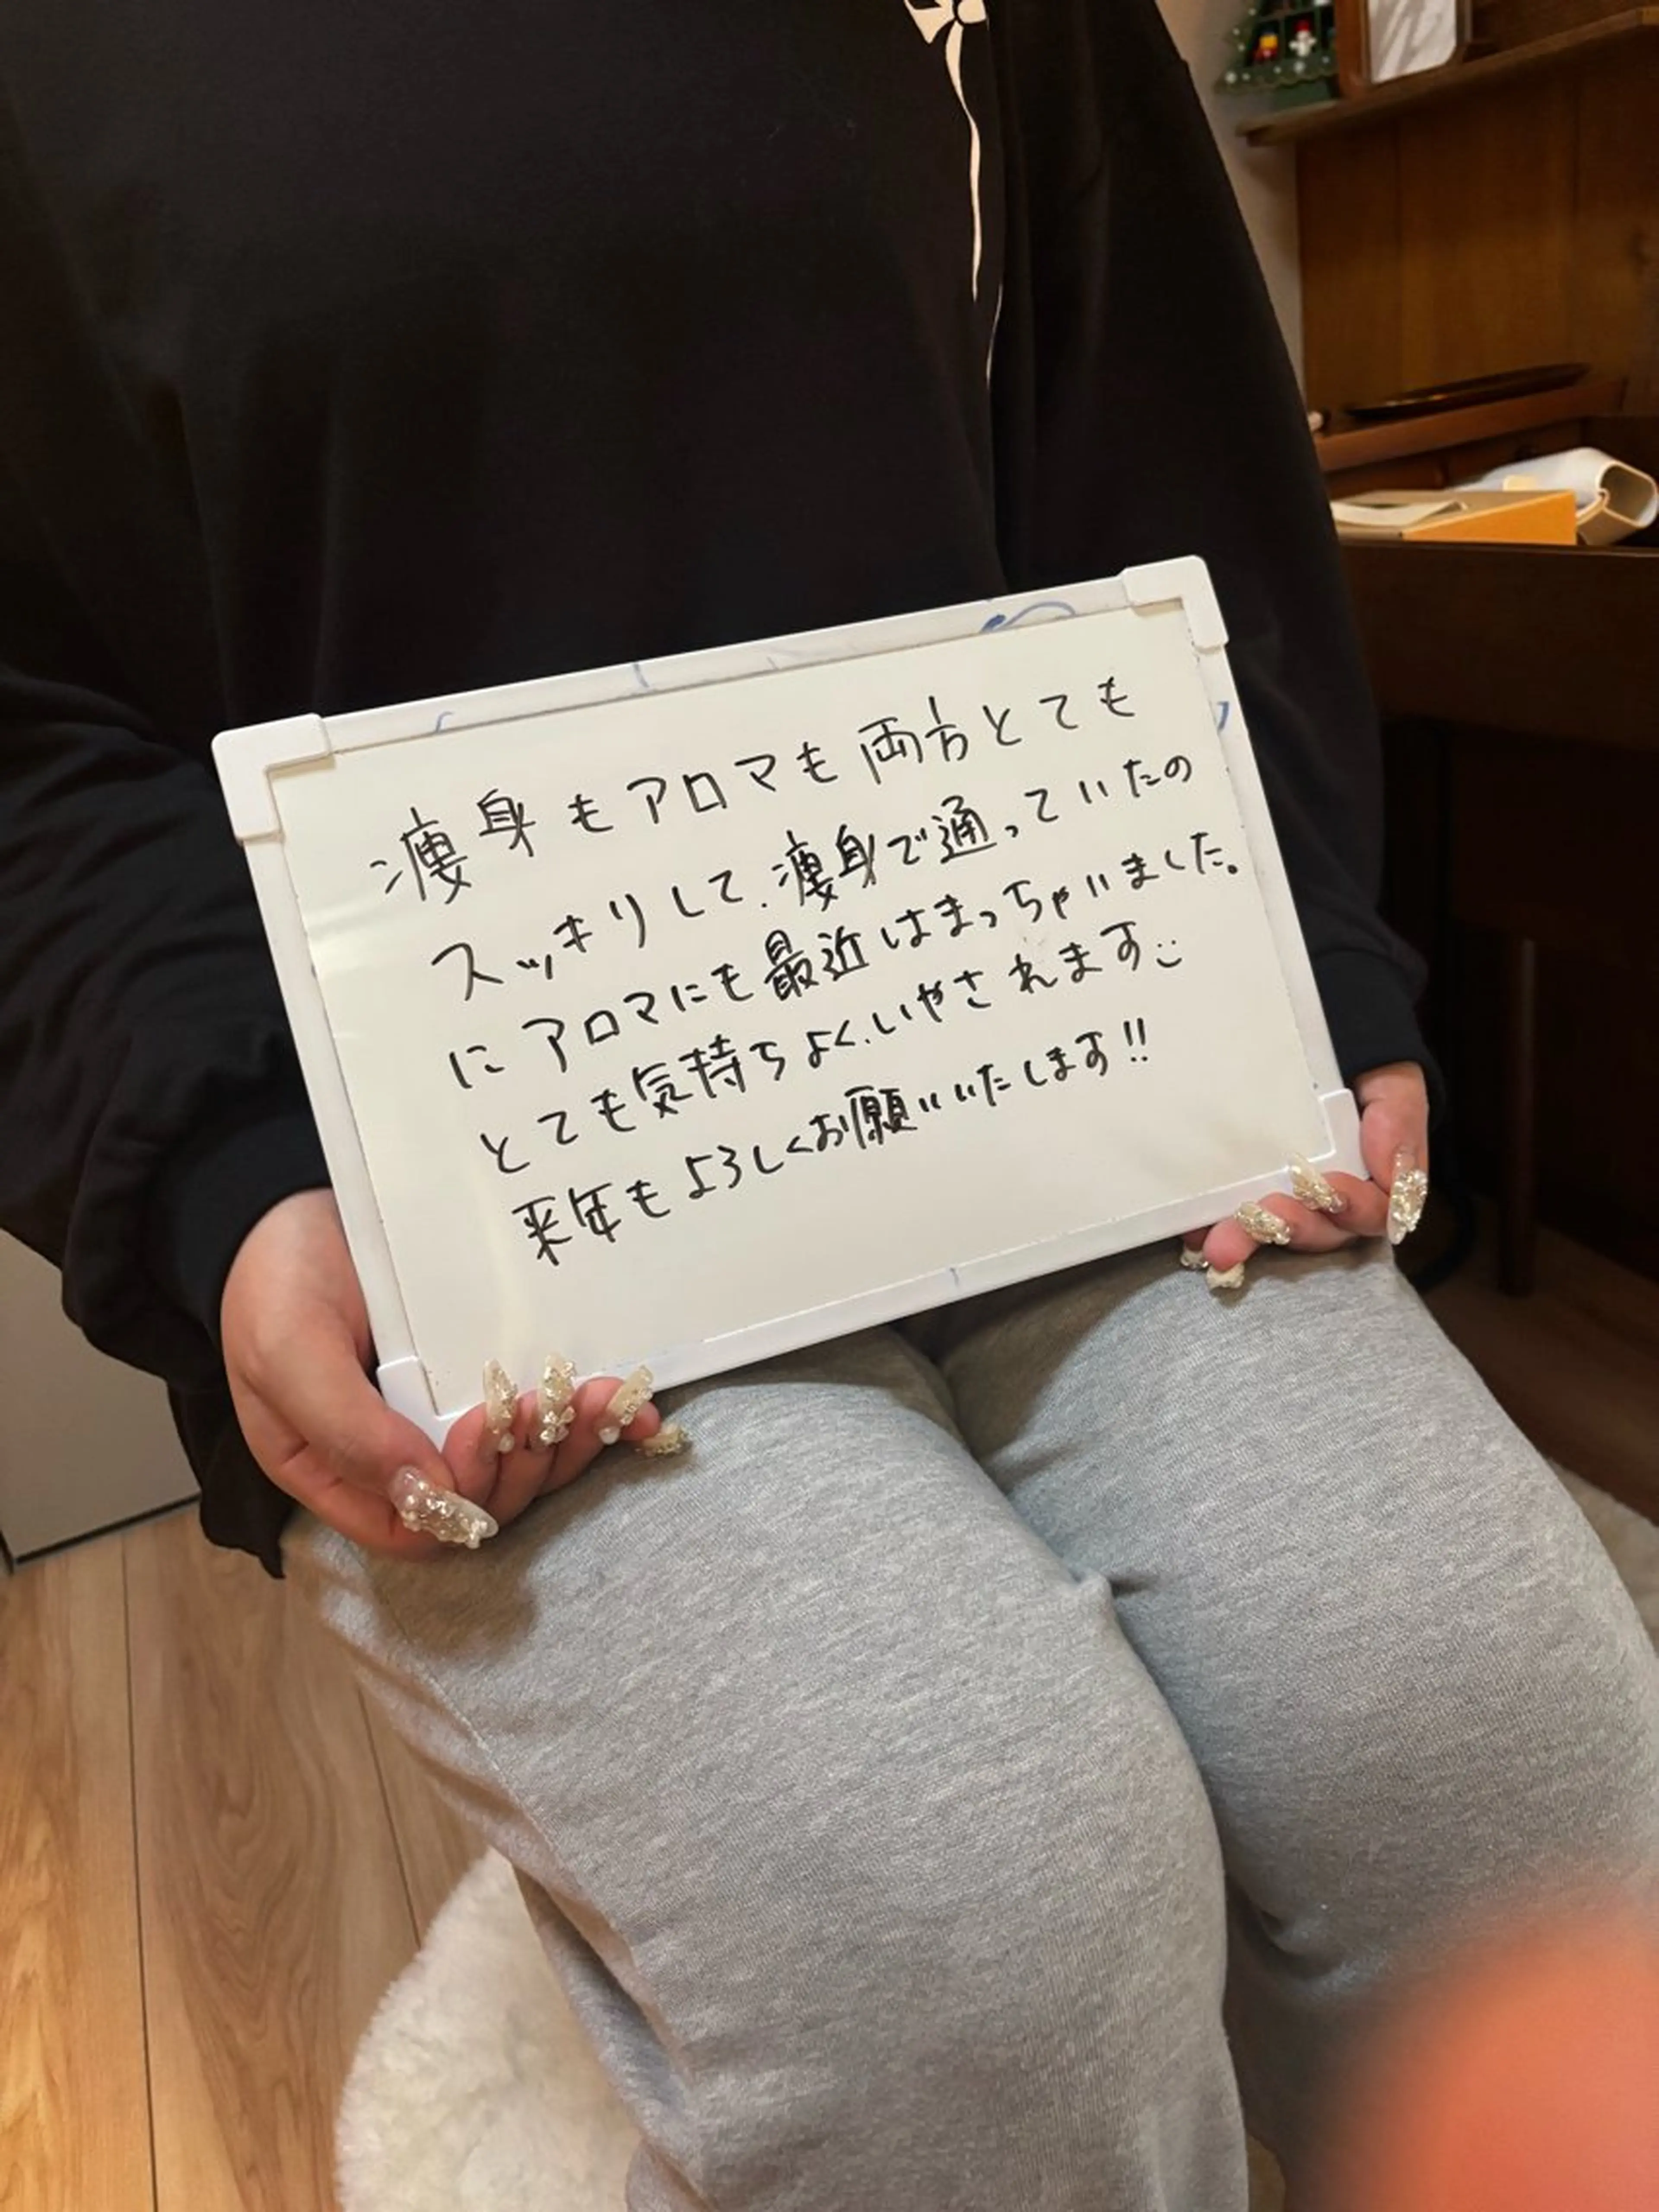 痩身もアロマも両方とても
スッキリして、痩身で通っていたの
にアロマにも最近はまっちゃいました。
とても気持ちよく、いやされます
来年もよろしくお願いいたします!!